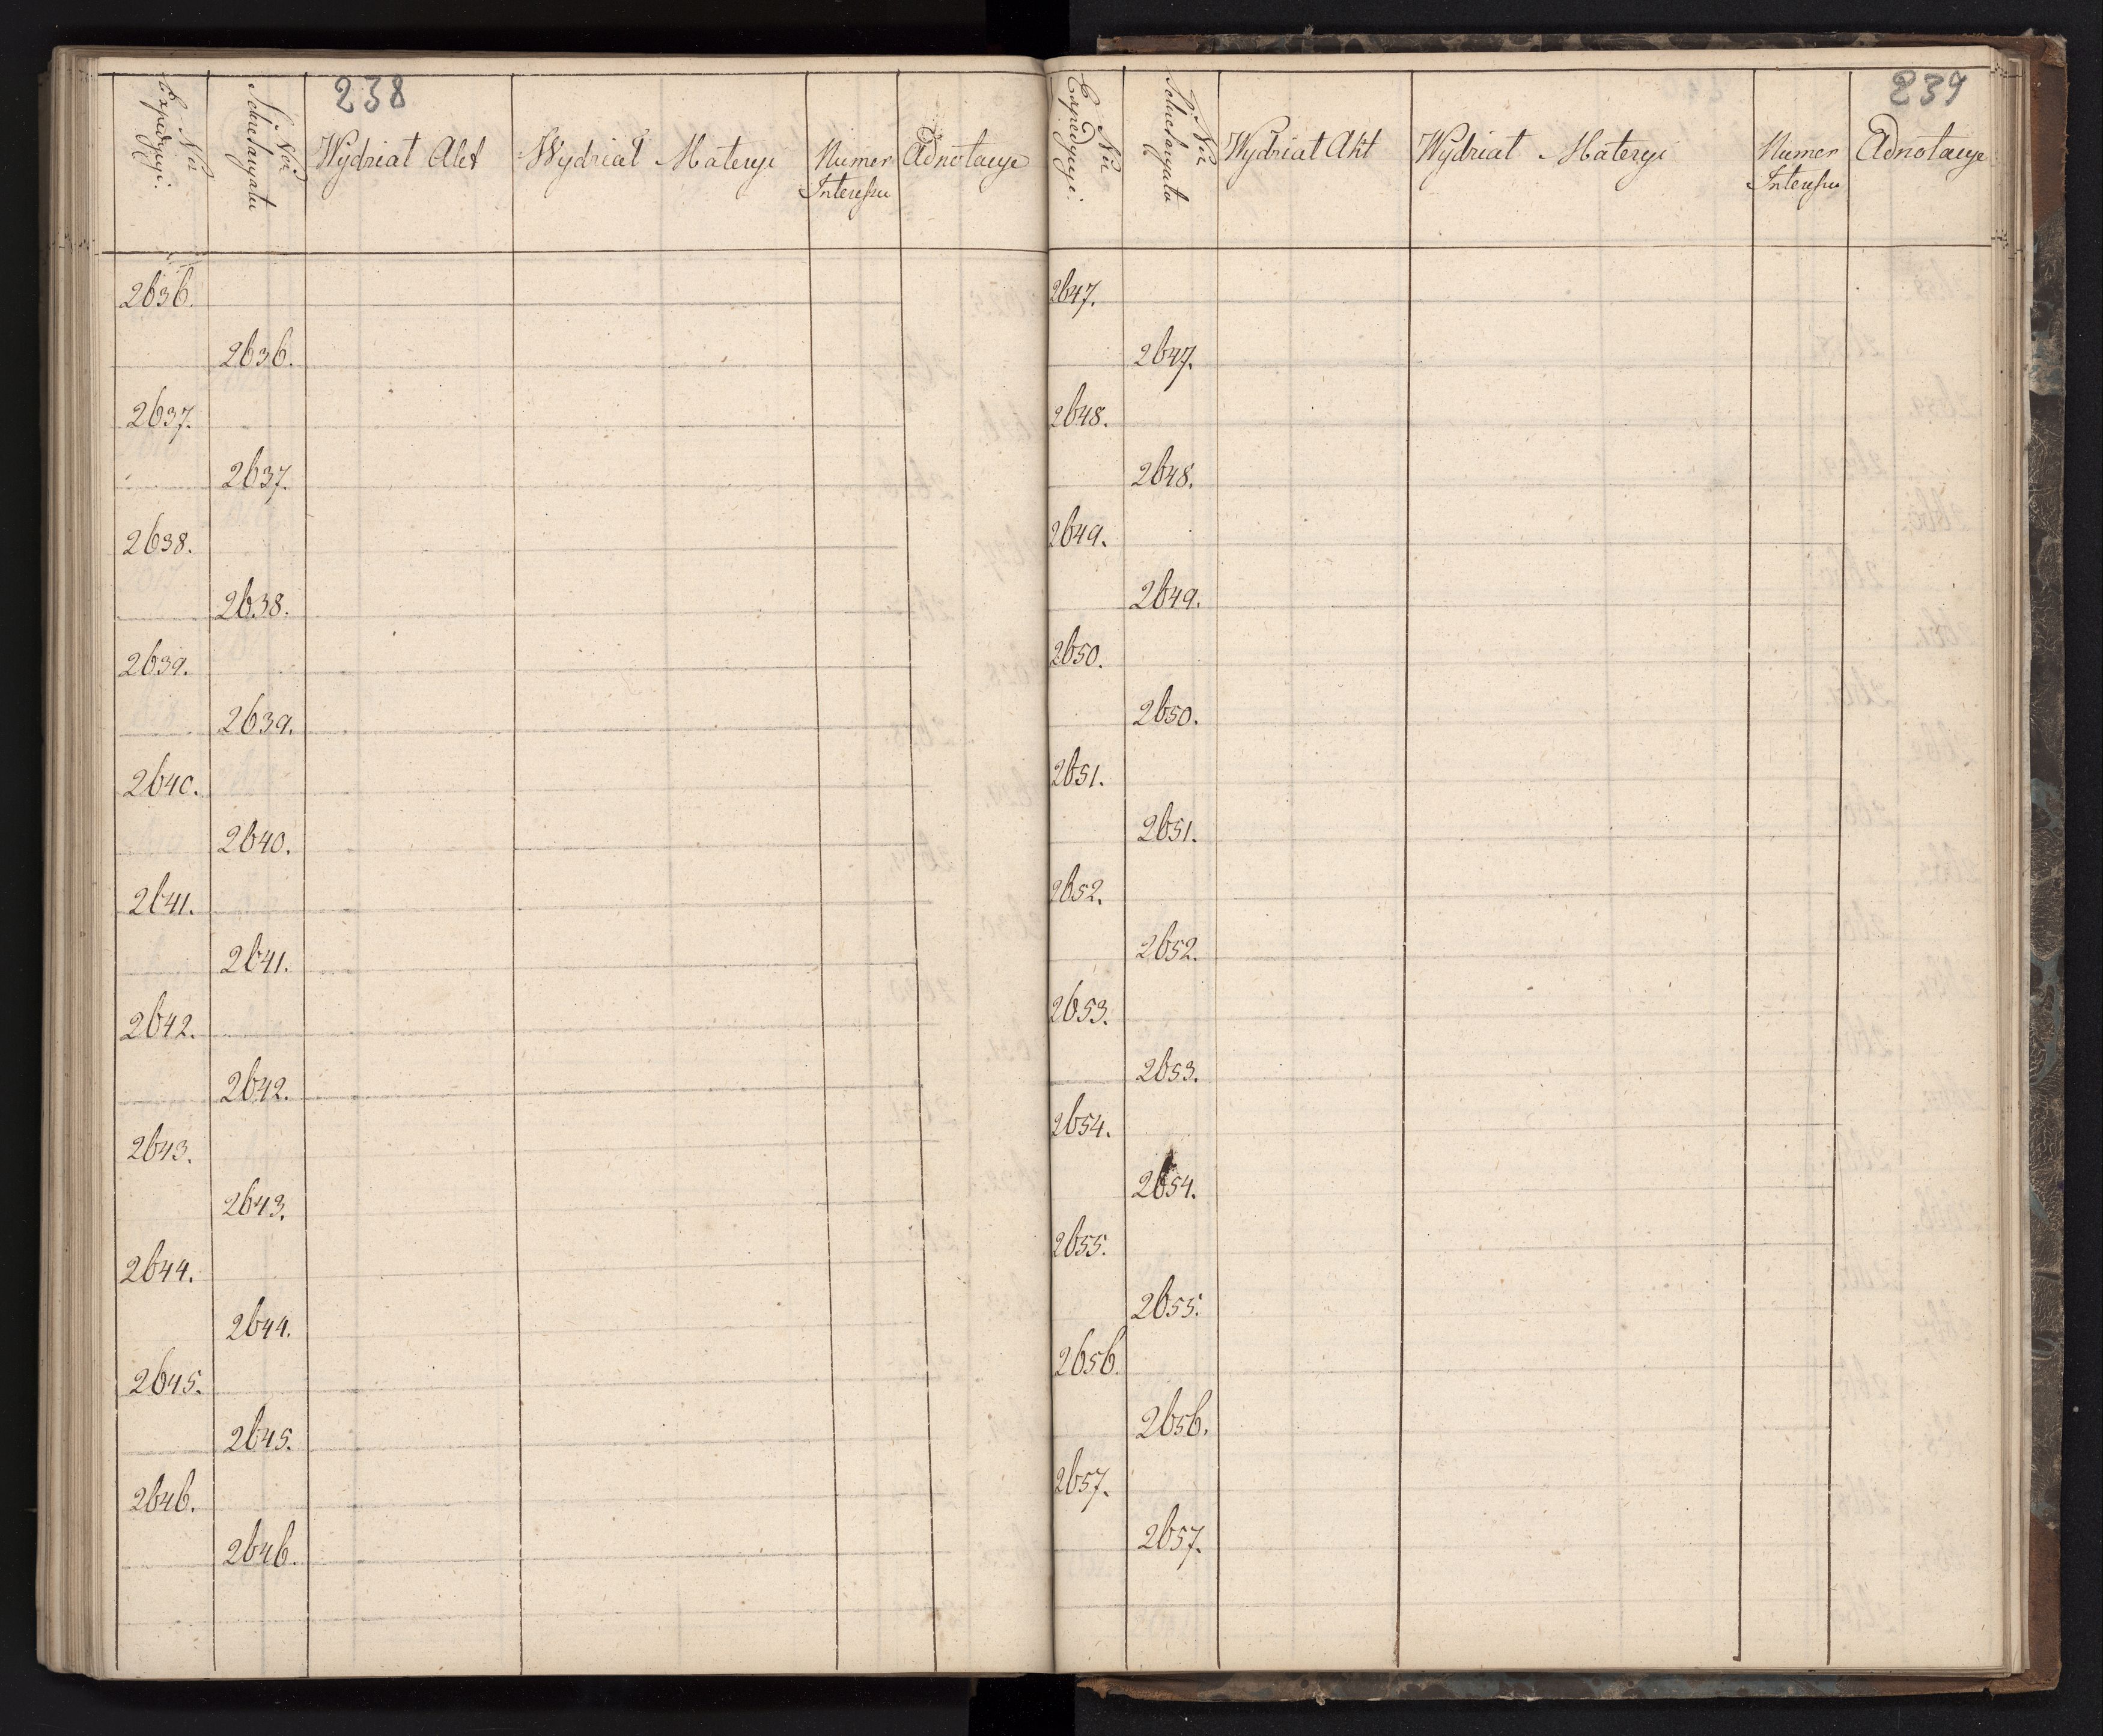 238
Nr Expedycyi.
Nr Sekretaryatu
Wydział Akt
Wydział Materyi
Numer Interessu
Adnotacye
2636.
2636.
2637.
2637.
2638.
2638.
2639.
2639.
2640.
2640.
2641.
2641.
2642.
2642.
2643.
2643.
2644.
2644.
2645.
2645.
2646.
2646.
239
Nr Expedycyi.
Nr Sekretaryatu
Wydział Akt
Wydział Materyi
Numer Interessu
Adnotacye
2647.
2647.
2648.
2648.
2649.
2649.
2650.
2650.
2651.
2651.
2652.
2652.
2653.
2653.
2654.
2654.
2655.
2655.
2656.
2656.
2657.
2657.